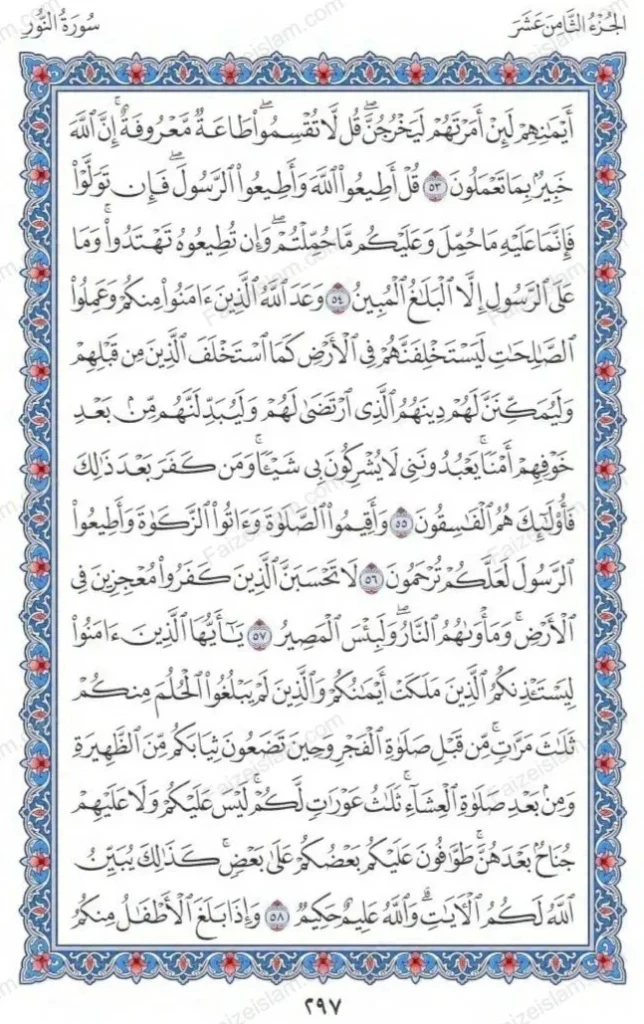 الجُزْءُ الثَّامِنَ عَشَرَ
سُورَةُ النُّورِ
أَيْمَٰنِهِمْ لَئِنْ أَمَرْتَهُمْ لَيَخْرُجُنَّ ۖ قُل لَّا تُقْسِمُوا۟ ۖ طَاعَةٌ مَّعْرُوفَةٌ ۚ إِنَّ ٱللَّهَ
خَبِيرٌۢ بِمَا تَعْمَلُونَ ٥٣ قُلْ أَطِيعُوا۟ ٱللَّهَ وَأَطِيعُوا۟ ٱلرَّسُولَ ۖ فَإِن تَوَلَّوْا۟
فَإِنَّمَا عَلَيْهِ مَا حُمِّلَ وَعَلَيْكُم مَّا حُمِّلْتُمْ ۖ وَإِن تُطِيعُوهُ تَهْتَدُوا۟ ۚ وَمَا
عَلَى ٱلرَّسُولِ إِلَّا ٱلْبَلَٰغُ ٱلْمُبِينُ ٥٤ وَعَدَ ٱللَّهُ ٱلَّذِينَ ءَامَنُوا۟ مِنكُمْ وَعَمِلُوا۟
ٱلصَّٰلِحَٰتِ لَيَسْتَخْلِفَنَّهُمْ فِى ٱلْأَرْضِ كَمَا ٱسْتَخْلَفَ ٱلَّذِينَ مِن قَبْلِهِمْ
وَلَيُمَكِّنَنَّ لَهُمْ دِينَهُمُ ٱلَّذِى ٱرْتَضَىٰ لَهُمْ وَلَيُبَدِّلَنَّهُم مِّنۢ بَعْدِ
خَوْفِهِمْ أَمْنًا ۚ يَعْبُدُونَنِى لَا يُشْرِكُونَ بِى شَيْـًٔا ۚ وَمَن كَفَرَ بَعْدَ ذَٰلِكَ
فَأُو۟لَٰٓئِكَ هُمُ ٱلْفَٰسِقُونَ ٥٥ وَأَقِيمُوا۟ ٱلصَّلَوٰةَ وَءَاتُوا۟ ٱلزَّكَوٰةَ وَأَطِيعُوا۟
ٱلرَّسُولَ لَعَلَّكُمْ تُرْحَمُونَ ٥٦ لَا تَحْسَبَنَّ ٱلَّذِينَ كَفَرُوا۟ مُعْجِزِينَ فِى
ٱلْأَرْضِ ۚ وَمَأْوَىٰهُمُ ٱلنَّارُ ۖ وَلَبِئْسَ ٱلْمَصِيرُ ٥٧ يَٰٓأَيُّهَا ٱلَّذِينَ ءَامَنُوا۟
لِيَسْتَـْٔذِنكُمُ ٱلَّذِينَ مَلَكَتْ أَيْمَٰنُكُمْ وَٱلَّذِينَ لَمْ يَبْلُغُوا۟ ٱلْحُلُمَ مِنكُمْ
ثَلَٰثَ مَرَّٰتٍ ۚ مِّن قَبْلِ صَلَوٰةِ ٱلْفَجْرِ وَحِينَ تَضَعُونَ ثِيَابَكُم مِّنَ ٱلظَّهِيرَةِ
وَمِنۢ بَعْدِ صَلَوٰةِ ٱلْعِشَآءِ ۚ ثَلَٰثُ عَوْرَٰتٍ لَّكُمْ ۚ لَيْسَ عَلَيْكُمْ وَلَا عَلَيْهِمْ
جُنَاحٌۢ بَعْدَهُنَّ ۚ طَوَّٰفُونَ عَلَيْكُم بَعْضُكُمْ عَلَىٰ بَعْضٍ ۚ كَذَٰلِكَ يُبَيِّنُ
ٱللَّهُ لَكُمُ ٱلْءَايَٰتِ ۗ وَٱللَّهُ عَلِيمٌ حَكِيمٌ ٥٨ وَإِذَا بَلَغَ ٱلْأَطْفَٰلُ مِنكُمُ
٢٩٧
Faizeislam.com